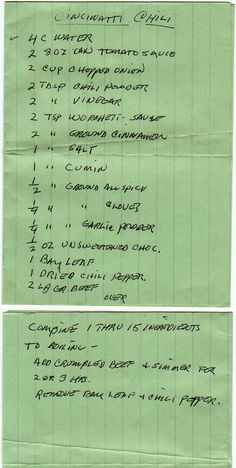 CINCINATTI CHILI
4 C WATER
2 8OZ CAN TOMATO SAUCE
2 CUP CHOPPED ONION
2 TBSP CHILI POWDER
2 " VINEGAR
2 TSP WORCHETI - SAUCE
2 " GROUND CINNAMON
1 " SALT
1 " CUMIN
1/2 " GROUND ALLSPICE
1/4 " " CLOVES
1/4 " " GARLIC POWDER
1/2 OZ UNSWEETENED CHOC.
1 BAY LEAF
1 DRIED CHILI PEPPER.
2 LB GR. BEEF
OVER
COMBINE 1 THRU 15 INGREDIENTS
TO BOILING -
ADD CRUMBLED BEEF & SIMMER FOR
2 OR 3 HRS.
REMOVE BAY LEAF & CHILI PEPPER.